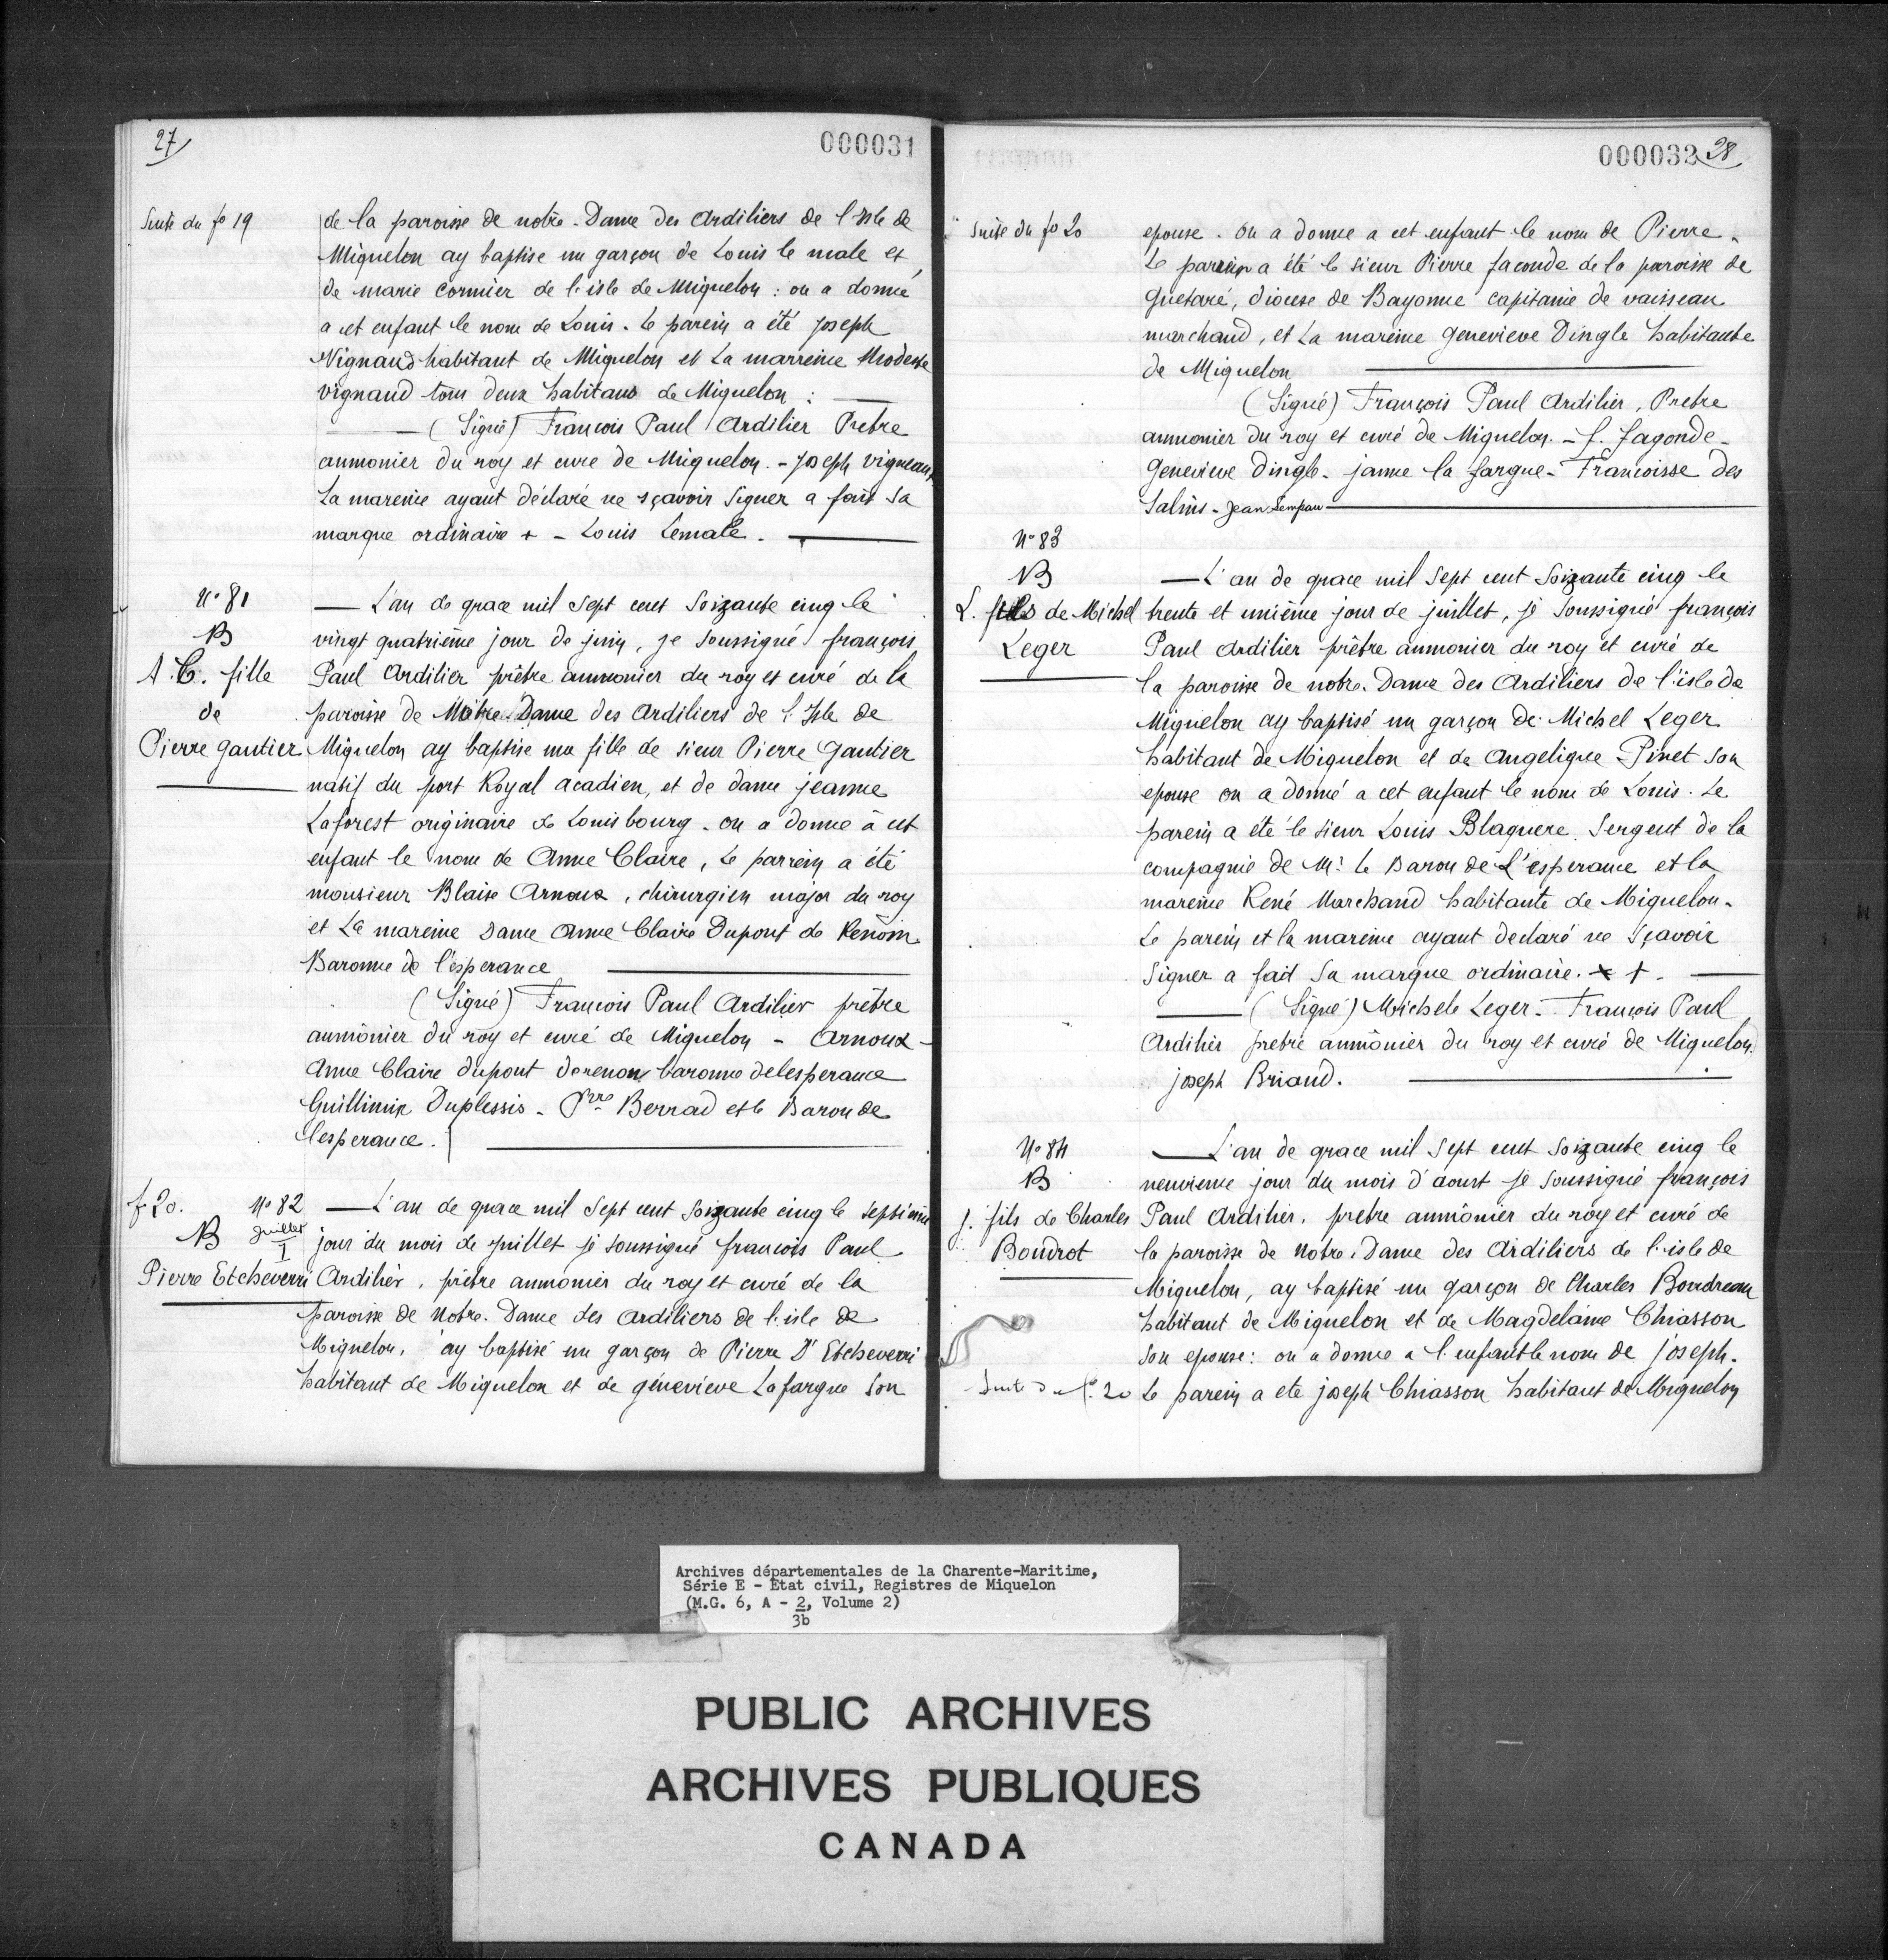 27
000031
Suite du fo 19
de la paroisse de notre-Dame des Ardiliers de l'Isle de
Miquelon ay baptise un garçon de Louis le male et
de marie Cormier de l'isle de Miquelon : on a donné
a cet enfant le nom de Louis. Le parein a été joseph
Vignaud habitant de Miquelon et La marreine Modeste
vignaud tous deux habitans de Miquelon :
(Signé) François Paul Ardilier Pretre
aumonier du roy et cure de Miquelon. - joseph vigneau,
La mareine ayant déclaré ne sçavoir Signer a fait sa
marque ordinaire + - Louis Lemale.
No 81
B
A. C. fille
de
Pierre Gautier
L'an de grace mil sept cent Soizante cinq le
vingt quatrième jour de juin, je soussigné françois
Paul Ardilier prêtre aumonier du roy et curé de la
paroisse de Notre-Dame des Ardiliers de l'Isle de
Miquelon ay baptise une fille de sieur Pierre Gautier
natif du port Royal acadien, et de dame jeanne
Laforest originaire de Louisbourg. on a donne à cet
enfant le nom de Anne Claire, Le parrein a été
monsieur Blaise Arnoux, chirurgien major du roy
et La mareine Dame Anne Claire Dupont de Renom
Baronne de l'esperance
(Signé) François Paul Ardilier prêtre
aumônier du roy et curé de Miquelon - Arnoux -
Anne Claire dupont derenom baronne delesperance
Guillimin Duplessis - Prre Bernad et le Baron de
l'esperance.
f 20.
No 82
B
juillet
I
Pierre Etcheverri
L'an de grace mil Sept cent Soizante cinq le septieme
jour du mois de juillet je soussigné françois Paul
Ardilier, prêtre aumonier du roy et curé de la
paroisse de Notre-Dame des Ardiliers de l'isle de
Miquelon, ay baptisé un garçon de Pierre D'Etcheverri
habitant de Miquelon et de génevieve Lafargue Son
000032
28
Suite du fo 20
epouse. On a donne a cet enfant le nom de Pierre.
Le parein a été le sieur Pierre faconde de la paroisse de
Guetaré, diocese de Bayonne capitaine de vaisseau
marchand, et La mareine Genevieve Dingle habitante
de Miquelon
(Signé) François Paul Ardilier, Pretre
aumonier du roy et curé de Miquelon. - f. fagonde -
Genevieve dingle - janne la fargue - Francoisse des
Salins - Jean Sempau
No 83
B
L. fils de Michel
Leger
L'an de grace mil Sept cent Soizante cinq le
trente et unième jour de juillet, je Soussigné françois
Paul Ardilier prêtre aumonier du roy et curé de
la paroisse de notre-Dame des Ardiliers de l'isle de
Miquelon ay baptisé un garçon de Michel Leger
habitant de Miquelon et de Angelique Pinet son
epouse on a donné a cet enfant le nom de Louis. Le
parein a été le Sieur Louis Blaquere Sergent de la
compagnie de Mr Le Baron de L'esperance et la
mareine René Marchand habitante de Miquelon.
Le parein et la mareine ayant declaré ne Sçavoir
Signer a fait Sa marque ordinaire. x +.
(Signé) Michele Leger - François Paul
Ardilier pretre aumônier du roy et curé de Miquelon
joseph Briand.
No 84
B
J. fils de Charles
Boudrot
L'an de grace mil Sept cent Soizante cinq le
neuvieme jour du mois d'aoust je soussigné françois
Paul Ardilier, pretre aumônier du roy et curé de
la paroisse de Notre-Dame des Ardiliers de l'isle de
Miquelon, ay baptisé un garçon de Charles Boudreau
habitant de Miquelon et de Magdelaine Chiasson
Son epouse : on a donne a l'enfant le nom de joseph.
Suite du fo 20
Le parein a ete joseph Chiasson habitant de Miquelon
Archives départementales de la Charente-Maritime,
Série E - Etat civil, Registres de Miquelon
(M.G. 6, A - 2, Volume 2)
3b
PUBLIC ARCHIVES
ARCHIVES PUBLIQUES
CANADA